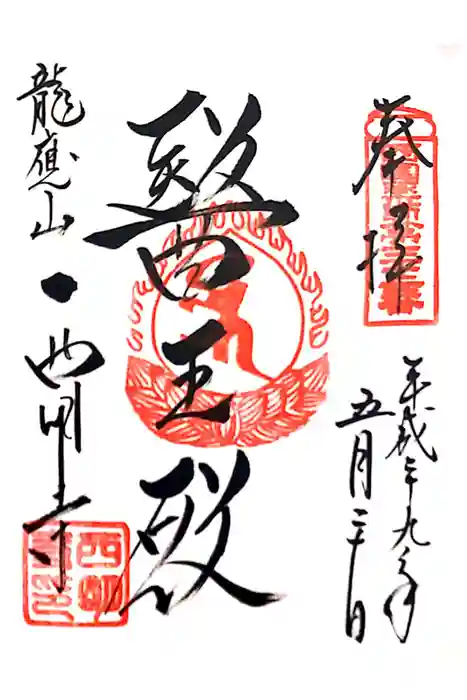 奉拝
平成二十九年
五月二十一日
醫王殿
龍應山・西明寺
西明